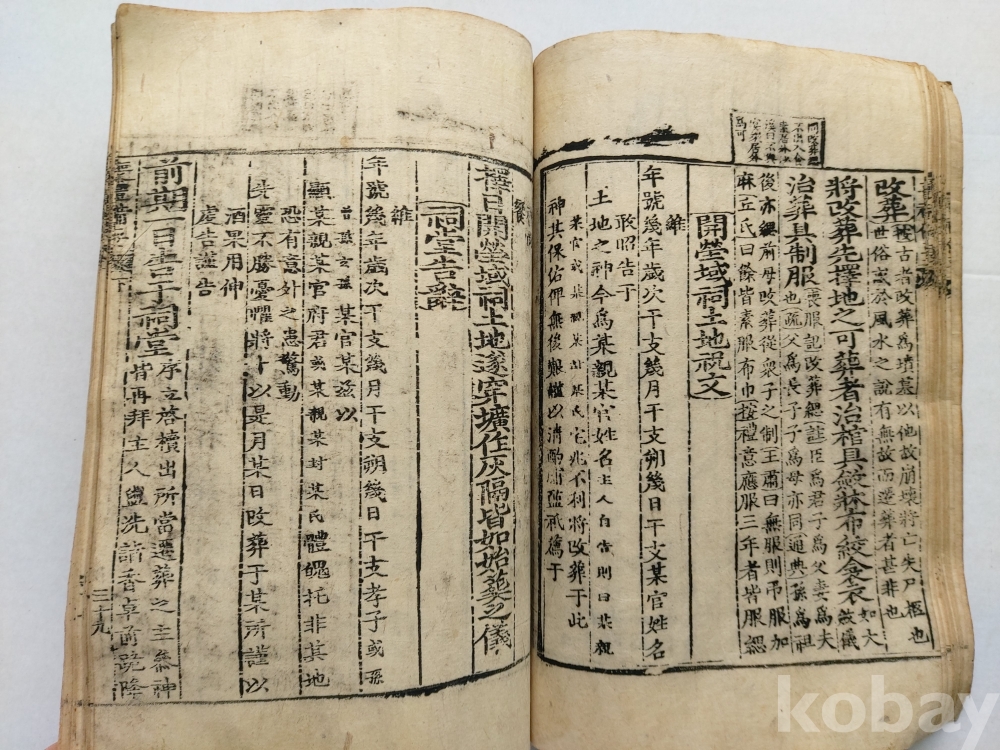 問改葬緦
改葬 按古者改葬爲墳墓以他故崩壞將亡失尸柩也
世俗或於風水之說有無故而遷葬者甚非也
將改葬先擇地之可葬者治棺具斂牀布絞衾衣 如大
斂儀
治葬具制服 喪服記改葬緦註臣爲君子爲父妻爲夫
也疏父爲長子子爲母亦同通典孫爲祖
後亦緦前母改葬從衆子之制王肅曰無服則吊加
麻丘氏曰餘皆素服布巾按禮意應服三年者皆服緦
開塋域祠土地祝文
維
年號幾年歲次干支幾月干支朔幾日干支某官姓名
敢昭告于
土地之神今爲某親某官姓名 主人自告則曰某親
某官或某親某封某氏宅兆不利將改葬于此
神其保佑俾無後艱謹以淸酌脯醢祗薦于
神尙
饗
擇日開塋域祠土地遂穿壙作灰隔皆如始葬之儀
祠堂告辭
維
年號幾年歲次干支幾月干支朔幾日干支孝子 或孫
曾孫玄孫 某官某玆以
顯某親某官府君 或某親某封某氏 體魄托非其地
恐有意外之患驚動
先靈不勝憂懼將卜以是月某日改葬于某所謹以
酒果用伸
虔告謹告
前期一日告于祠堂 序立啓櫝出所當遷葬之主參神
皆再拜主人盥洗詣香卓前跪降
三十九
kobay